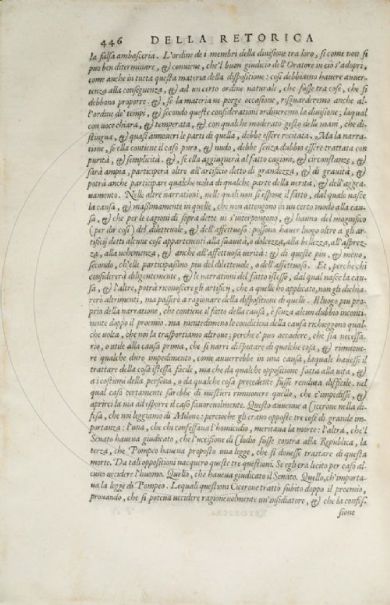 446 DELLA RETORICA
la falsa ambasceria. L'ordine de i membri della diuisione tra loro, si come non si
può ben diterminare, & conuiene, che'l buon giudicio dell'Oratore in ciò s'adopri,
come anche in tutta questa materia della dispositione: così debbiamo hauere auuer-
tenza alla conseguenza, & ad un certo ordine naturale, che fusse tra cose, che si
debbano proporre: &, se la materia ne porge occasione, risguarderemo anche al-
l'ordine de' tempi, & secondo queste considerationi ordineremo la diuisione, laqual
con uoce chiara, & temperata, & con qualche moderato gesto delle mani, che di-
stingua, & quasi annoueri le parti di quella, debbe essere recitata. Ma la narra-
tione, se ella contiene il caso puro, & nudo, debbe senza dubbio essere trattata con
purità, & semplicità: &, se ella aggiugnerà al fatto cagioni, & circunstanze, &
sarà ampia, participerà oltre all'artificio detto di grandezza, & di grauità, &
potrà anche participare qualche uolta di qualche parte della uerità, & dell'aggra-
uamento. Nelle altre narrationi, nelle quali non si espone il fatto, dal quale nasce
la causa, & massimamente in quelle, che non attengono in un certo modo alla cau-
sa, & che per le cagioni di sopra dette ui s'interpongono, & hanno del magnifico
(per dir così) del diletteuole, & dell'affettuoso: possono hauer luogo oltre a gli ar-
tificij detti alcuni così appartenenti alla suauità, ò dolcezza, alla bellezza, all'asprez-
za, alla uehemenza, & anche all'affettuosa uerità: & di queste più, & meno,
secondo, ch'elle participano più ò del diletteuole, ò dell'affettuoso. Et, perche chi
considererà diligentemente, & le narrationi del fatto istesso, dal qual nasce la cau-
sa, & l'altre, potrà riconoscere gli artificij, che a quelle ho applicato, non gli dichia-
rerò altrimenti, ma passerò a ragionare della dispositione di quelle. Il luogo più pro-
prio della narratione, che contiene il fatto della causa, è senza alcun dubbio inconti-
nente dopò il proemio. ma nientedimeno le condicioni della causa richieggono qual-
che uolta, che noi la trasportiamo altroue; perche è può accadere, che sia necessa-
rio, ò utile alla causa prima, che si narri disputare di qualche cosa, & rimouere
re qualche duro impedimento, come auuerrebbe in una causa, laquale hauesse il
trattare della cosa istessa facile, ma che da qualche oppositione fatta alla uita, &
a i costumi della persona, ò da qualche cosa precedente fusse renduta difficile. nel
qual caso certamente sarebbe di mestieri rimouere quello, che c'impedisse, &
aprirci la uia ad esporre il caso sicuramente. Questo auuenne a Cicerone nella di-
fesa, che noi leggiamo di Milone: percioche gli erano opposte tre cose di grande im-
portanza: l'una, che chi confessaua l'homicidio, meritaua la morte: l'altra, che'l
Senato haueua giudicato, che l'uccisione di Clodio fusse contra alla Republica, la
terza, che Pompeo haueua proposto una legge, che si douesse trattare di questa
morte. Da tali oppositioni nacquero queste tre questioni. Se egli era lecito per caso al-
cuno uccidere l'huomo. Quello, che haueua giudicato il Senato. Quello, ch'importa-
ua la legge di Pompeo. Le quali questioni Cicerone trattò subito dopò il proemio,
prouando, che si poteua uccidere ragioneuolmente un'insidiatore, & che la confes-
sione